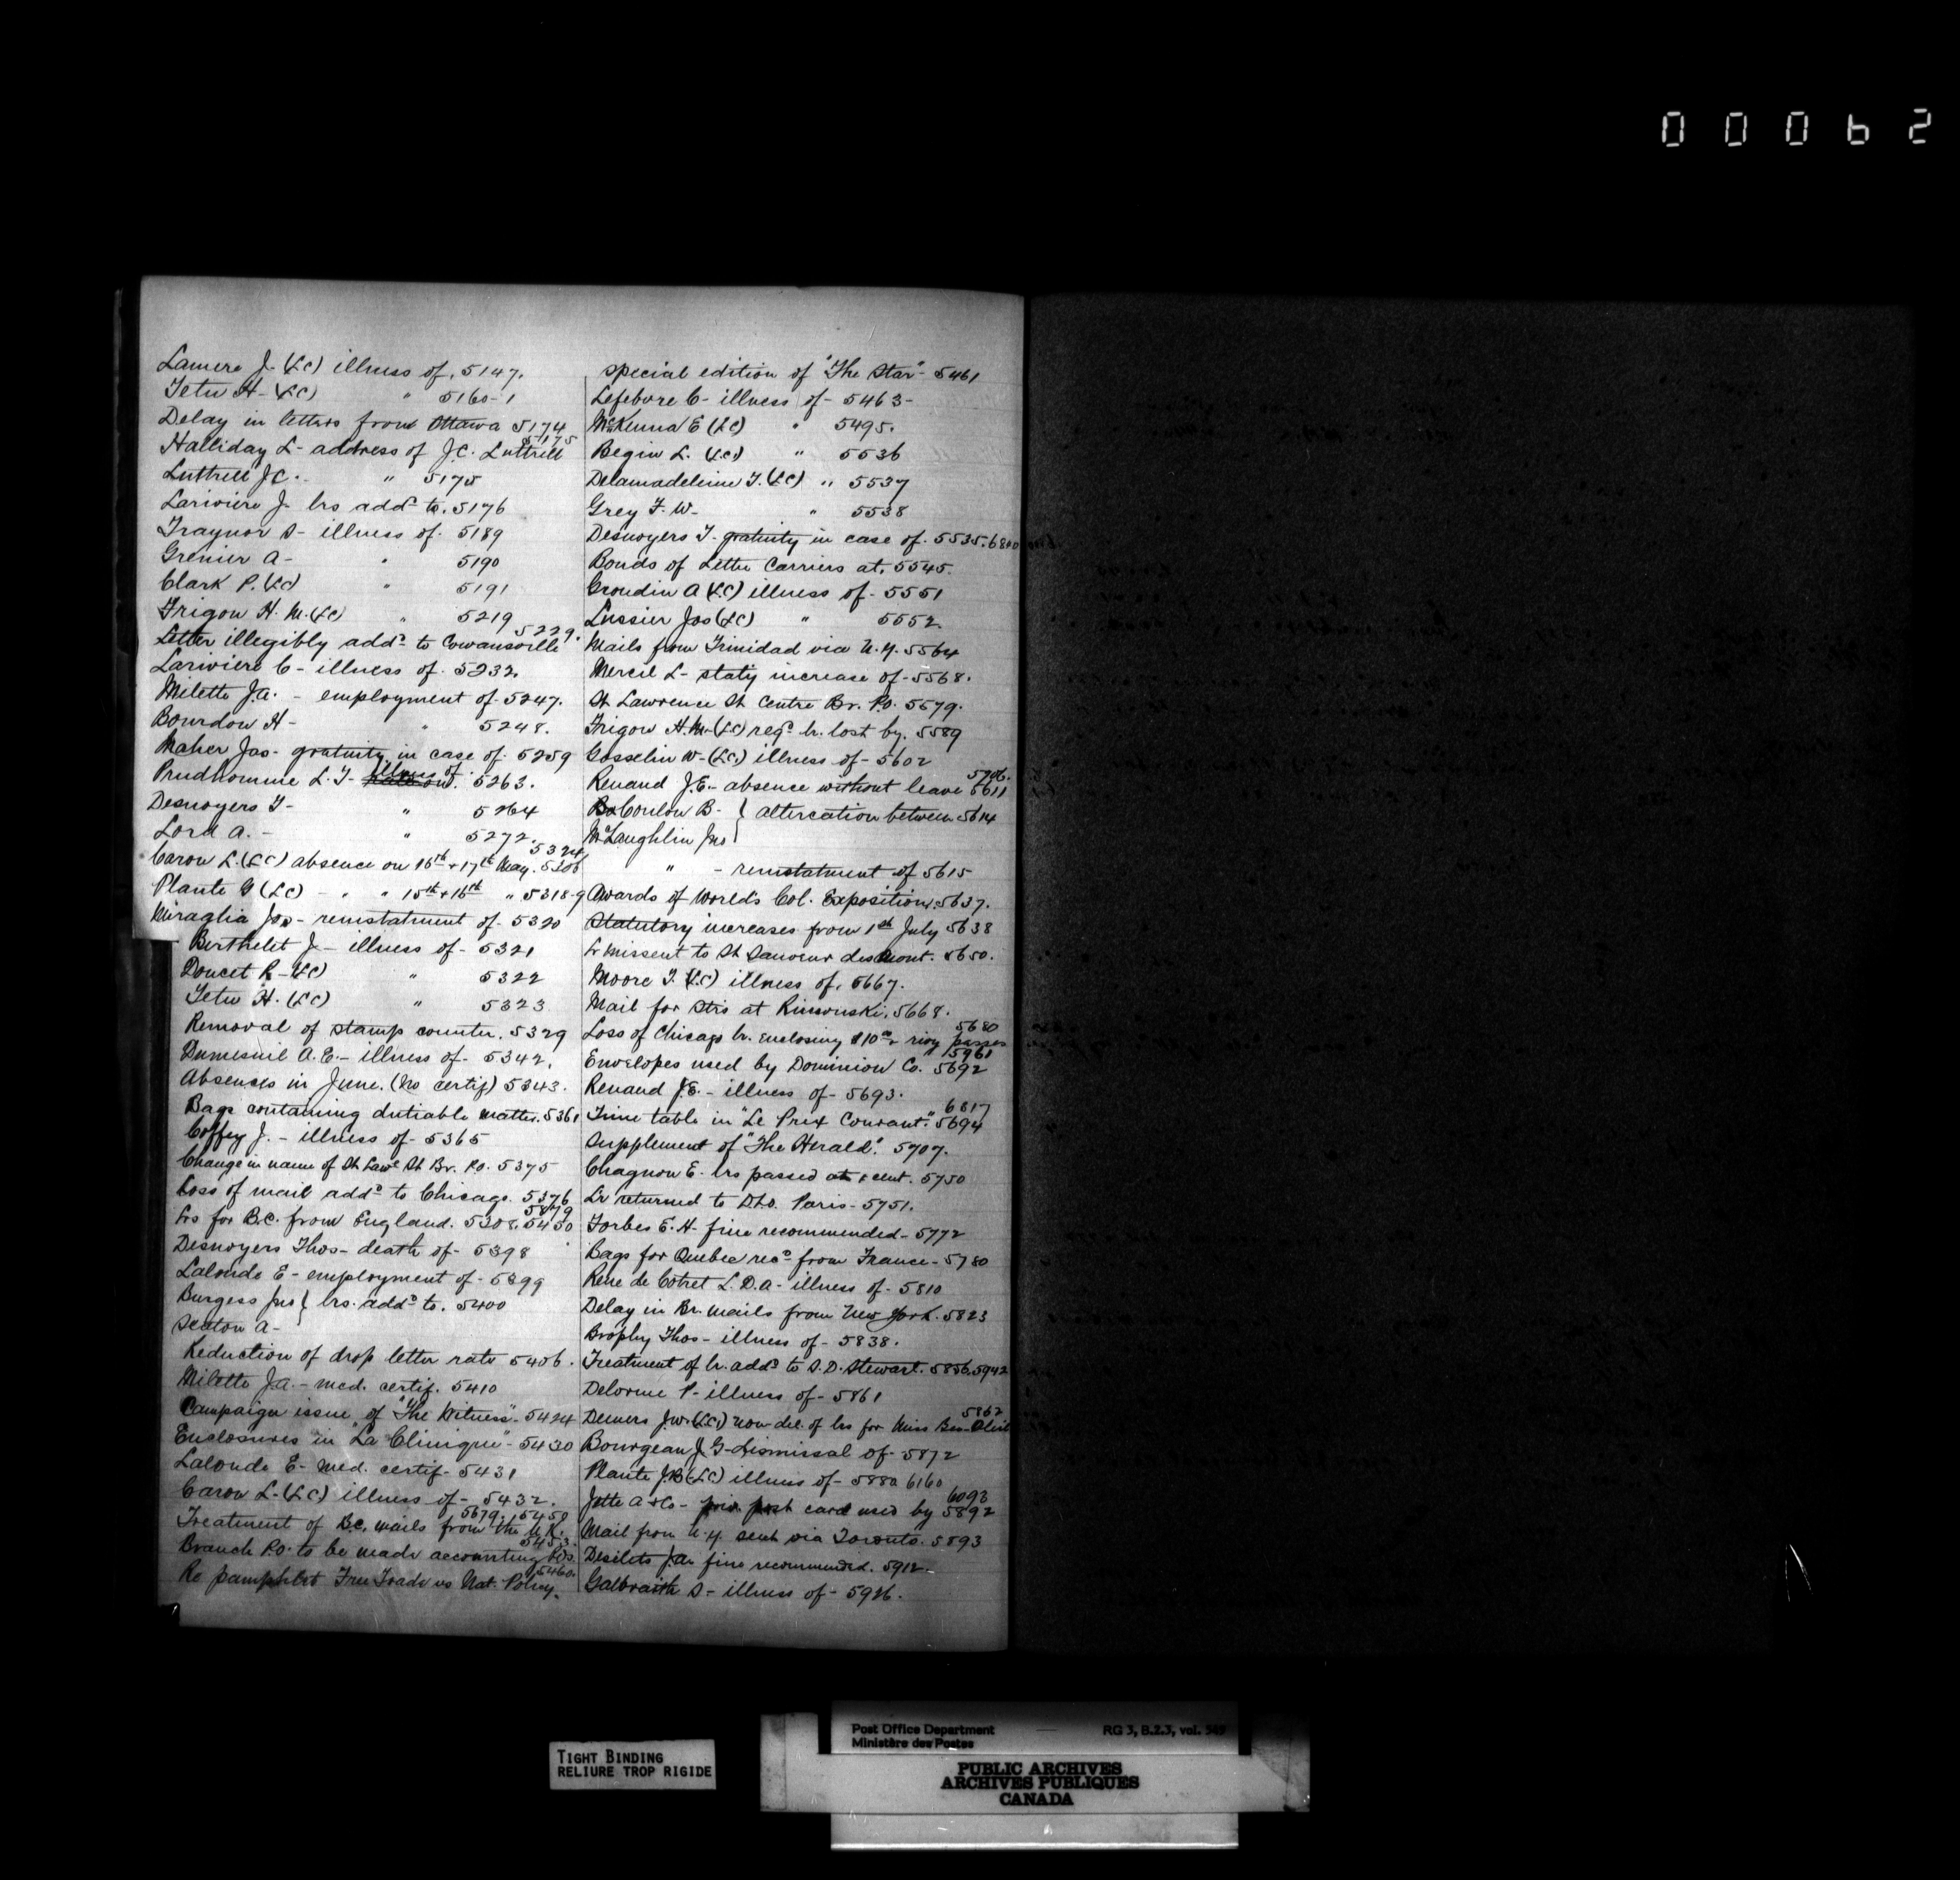 00062
Lamere J. (LC) illness of. 5147.
Tetu H- (LC) " 5160-1
Delay in letters from Ottawa 5174
5175
Halliday L- address of J.C. Luttrell
Luttrell JC. - " 5175
Lariviere J- lrs addd to. 5176
Traynor D- illness of. 5189
Grenier A- " 5190
Clark P. (LC) " 5191
Frigon H. M. (LC) " 5219
5229.
Letter illegibly addd to Cowansville
Lariviere C- illness of. 5232.
Milette J.A. - employment of. 5247.
Bourdon H- " 5248.
Maher Jas- gratuity in case of. 5259
Prudhomme L. T- illness of. 5263.
Desnoyers T- " 5264
Lord A. - " 5272.
5324
Caron L. (LC) absence on 16th + 17th May. 5306
Plante G (LC) - " " 15th + 16th " 5318-9
Miraglia Jos- reinstatment of. 5320
Berthelet J- illness of- 5321
Doucet R- (LC) " 5322
Tetu H. (LC) " 5323
Removal of stamp counter. 5329
Dumesnil A.E.- illness of- 5342.
Absences in June. (No certif) 5343.
Bags containing dutiable matter. 5361
Coffey J. - illness of- 5365
Change in name of St Lawe St Br. P.O. 5375
Loss of mail addd to Chicago. 5376
5879
Lrs for B.C. from England. 5308. 5450
Desnoyers Thos- death of- 5398
Lalonde E- employment of- 5399
Burgess Jno } lrs. addd to. 5400
Sexton A-
Reduction of drop letter rate 5406.
Milette J.A. - med. certif. 5410
Campaign issue of "The Witness"- 5424
Enclosures in "La Clinique"- 5430
Lalonde E- Med. certif- 5431
Caron L- (LC) illness of- 5432.
5679. 5450
Treatment of B.C. mails from the U.K.
5453.
Branch P.O. to be made accounting
5460.
Re pamphlet Free Trade vs Nat. Policy.
special edition of "The Star"- 5461
Lefebvre C- illness of- 5463-
McKenna E (LC) " 5495.
Begin L. (LC) " 5536
Delamadeleine T. (LC) " 5537
Grey F. W- " 5538
Desnoyers T- gratuity in case of. 5535. 6840
Bonds of Letter Carriers at. 5545.
Grondin A (LC) illness of- 5551
Lussier Jos (LC) " 5552.
Mails from Trinidad via N.Y. 5564
Mercil L- staty increase of- 5568.
St Lawrence St Centre Br. P.O. 5579.
Frigon H.M- (LC) regd lr. lost by. 5589
Gosselin W- (LC) illness of- 5602
5706.
Renaud J.E.- absence without leave 5611
Conlon B- } altercation between 5614
McLaughlin Jno
" - reinstatment of 5615
Awards of World's Col. Exposition. 5637.
Statutory increases from 1st July 5638
Lr missent to St Sauveur des Mont. 5650.
Moore T. (LC) illness of. 5667.
Mail for Strs at Rimouski. 5668.
5680
Loss of Chicago lr. enclosing $10 00 + rwy passes
5961
Envelopes used by Dominion Co. 5692
Renaud J.E. - illness of- 5693.
6817
Time table in "Le Prix Courant." 5694
Supplement of "The Herald". 5707.
Chagnon E- lrs passed at 1 cent. 5750
Lr returned to D.L.O. Paris- 5751.
Forbes E. H- fine recommended- 5772
Bags for Quebec recd from France- 5780
Rene de Cotret L. D.A- illness of- 5810
Delay in Br. mails from New York. 5823
Brophy Thos- illness of- 5838.
Treatment of lr. addd to S.D. Stewart. 5856. 5942
Delorme P- illness of- 5861
5862
Demers J.W. (LC) non-del. of lrs for Miss
Bourgeau J. G- dismissal of- 5872
Plante J.B (LC) illness of- 5880 6160
6093
Jette A & Co- priv. post card used by 5892
Mail from N.Y. sent via Toronto. 5893
Desilets J.A. fine recommended. 5912.
Galbraith D- illness of- 5926.
TIGHT BINDING
RELIURE TROP RIGIDE
Post Office Department — RG 3, B.2.3, vol. 589
Ministère des Postes
PUBLIC ARCHIVES
ARCHIVES PUBLIQUES
CANADA